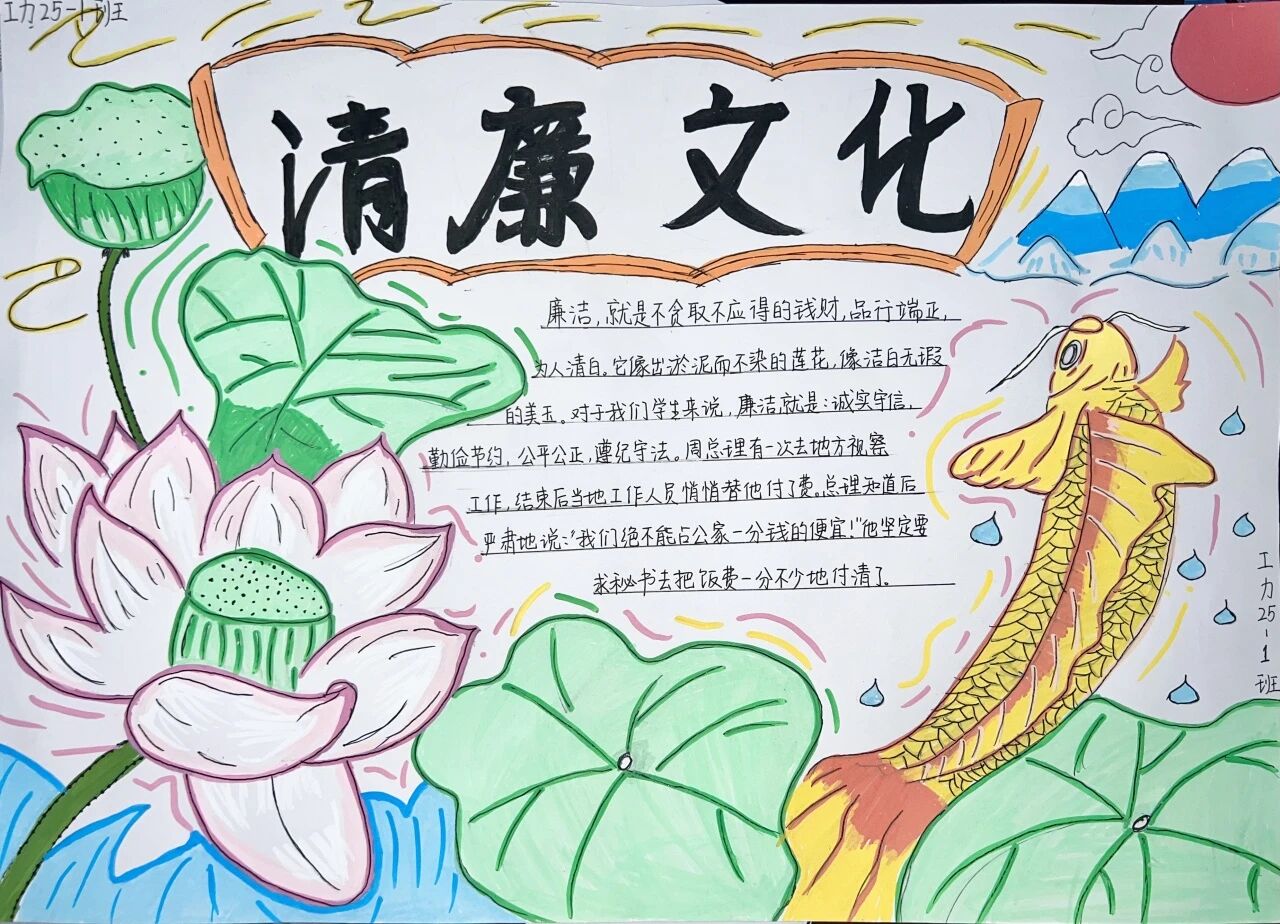 工力25-1班
清廉文化
廉洁,就是不贪取不应得的钱财,品行端正,
为人清白。它像出淤泥而不染的莲花,像洁白无瑕
的美玉。对于我们学生来说,廉洁就是:诚实守信,
勤俭节约,公平公正,遵纪守法。周总理有一次去地方视察
工作,结束后当地工作人员悄悄替他付了费。总理知道后
严肃地说:"我们绝不能占公家一分钱的便宜!"他坚定要
求秘书去把饭费一分不少地付清了。
工力25-1班